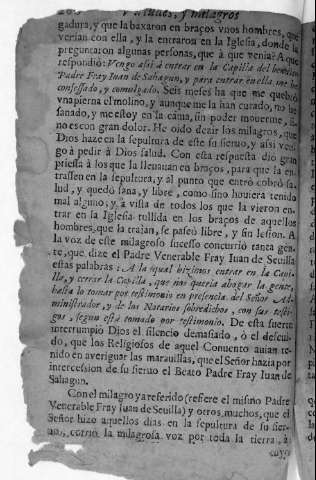 y milagros
gadura, y que la baxaron en braços vnos hombres, que
verian con ella, y la entraron en la Iglesia, donde la
preguntaron algunas personas, que à que venia? A que
respondiò: Vengo assi à entrar en la Capilla del bendito
Padre Fray Iuan de Sahagun, y para entrar en ella me he
confessado, y comulgado. Seis meses ha que me quebrò
vna pierna el molino, y aunque me la han curado, no he
sanado, y me estoy en la cama, sin poder mouerme, si
no es con gran dolor. He oido dezir los milagros, que
Dios haze en la sepultura de este su sieruo, y assi ven-
go à pedir à Dios salud. Con esta respuesta diò gran
priessa à los que la lleuauan en braços, para que la en-
trassen en la sepultura, y al punto que entrò cobrò sa-
lud, y quedò sana, y libre, como sino huuiera tenido
mal alguno, y à vista de todos los que la vieron en-
trar en la Iglesia tullida en los braços de aquellos
hombres, que la traìan, se paseò libre, y sin lesion. A
la voz de este milagroso sucesso concurriò tanta gen-
te, que dize el Padre Venerable Fray Iuan de Seuilla
estas palabras: A la qual hizimos entrar en la Capi-
lla, y cerrar la Capilla, que nos queria ahogar la gente,
hasta lo tomar por testimonio en presencia del Señor Ad-
ministrador, y de los Notarios sobredichos, con sus testi-
gos, segun està tomado por testimonio. De esta suerte
interrumpiò Dios el silencio demasiado, ò el descui-
do, que los Religiosos de aquel Conuento auian te-
nido en aueriguar las marauillas, que el Señor hazia por
intercession de su sieruo el Beato Padre Fray Iuan de
Sahagun.
Con el milagro ya referido (refiere el mismo Padre
Venerable Fray Iuan de Seuilla) y otros muchos, que el
Señor hizo aquellos dias en la sepultura de su sier-
uo, corriò la milagrosa voz por toda la tierra, à
cuya